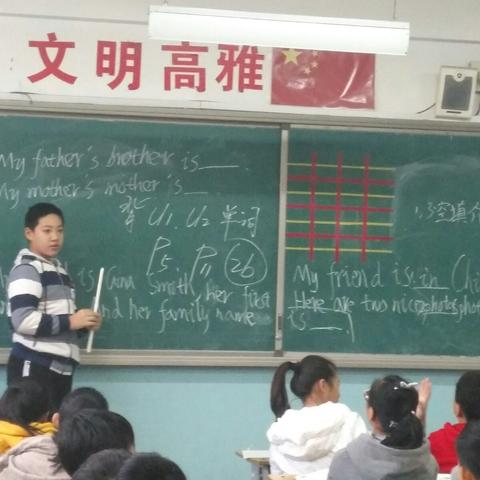 文明高雅
My father's brother is___.
My mother's mother is__
背 U1. U2 单词
P5. P11 26
is Gina Smith her first
and her family name
is ___.
1.3空填
My friend is in Chi
Here are two nice photos